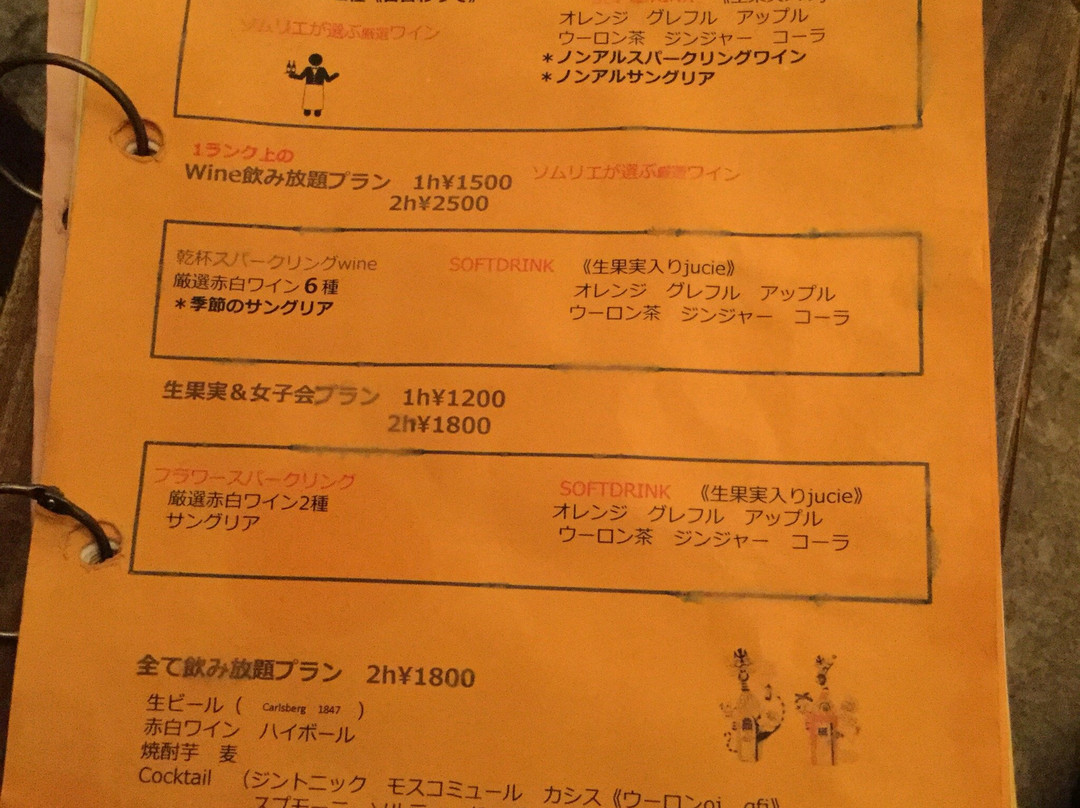 ソムリエが選ぶ厳選ワイン
オレンジ　グレフル　アップル
ウーロン茶　ジンジャー　コーラ
＊ノンアルスパークリングワイン
＊ノンアルサングリア
1ランク上の
Wine飲み放題プラン　1h¥1500　ソムリエが選ぶ厳選ワイン
2h¥2500
乾杯スパークリングwine
厳選赤白ワイン６種
＊季節のサングリア
SOFTDRINK　《生果実入りjucie》
オレンジ　グレフル　アップル
ウーロン茶　ジンジャー　コーラ
生果実＆女子会プラン　1h¥1200
2h¥1800
フラワースパークリング
厳選赤白ワイン2種
サングリア
SOFTDRINK　《生果実入りjucie》
オレンジ　グレフル　アップル
ウーロン茶　ジンジャー　コーラ
全て飲み放題プラン　2h¥1800
生ビール（　Carlsberg　1847　）
赤白ワイン　ハイボール
焼酎芋　麦
Cocktail　（ジントニック　モスコミュール　カシス《ウーロンoj　gfj》